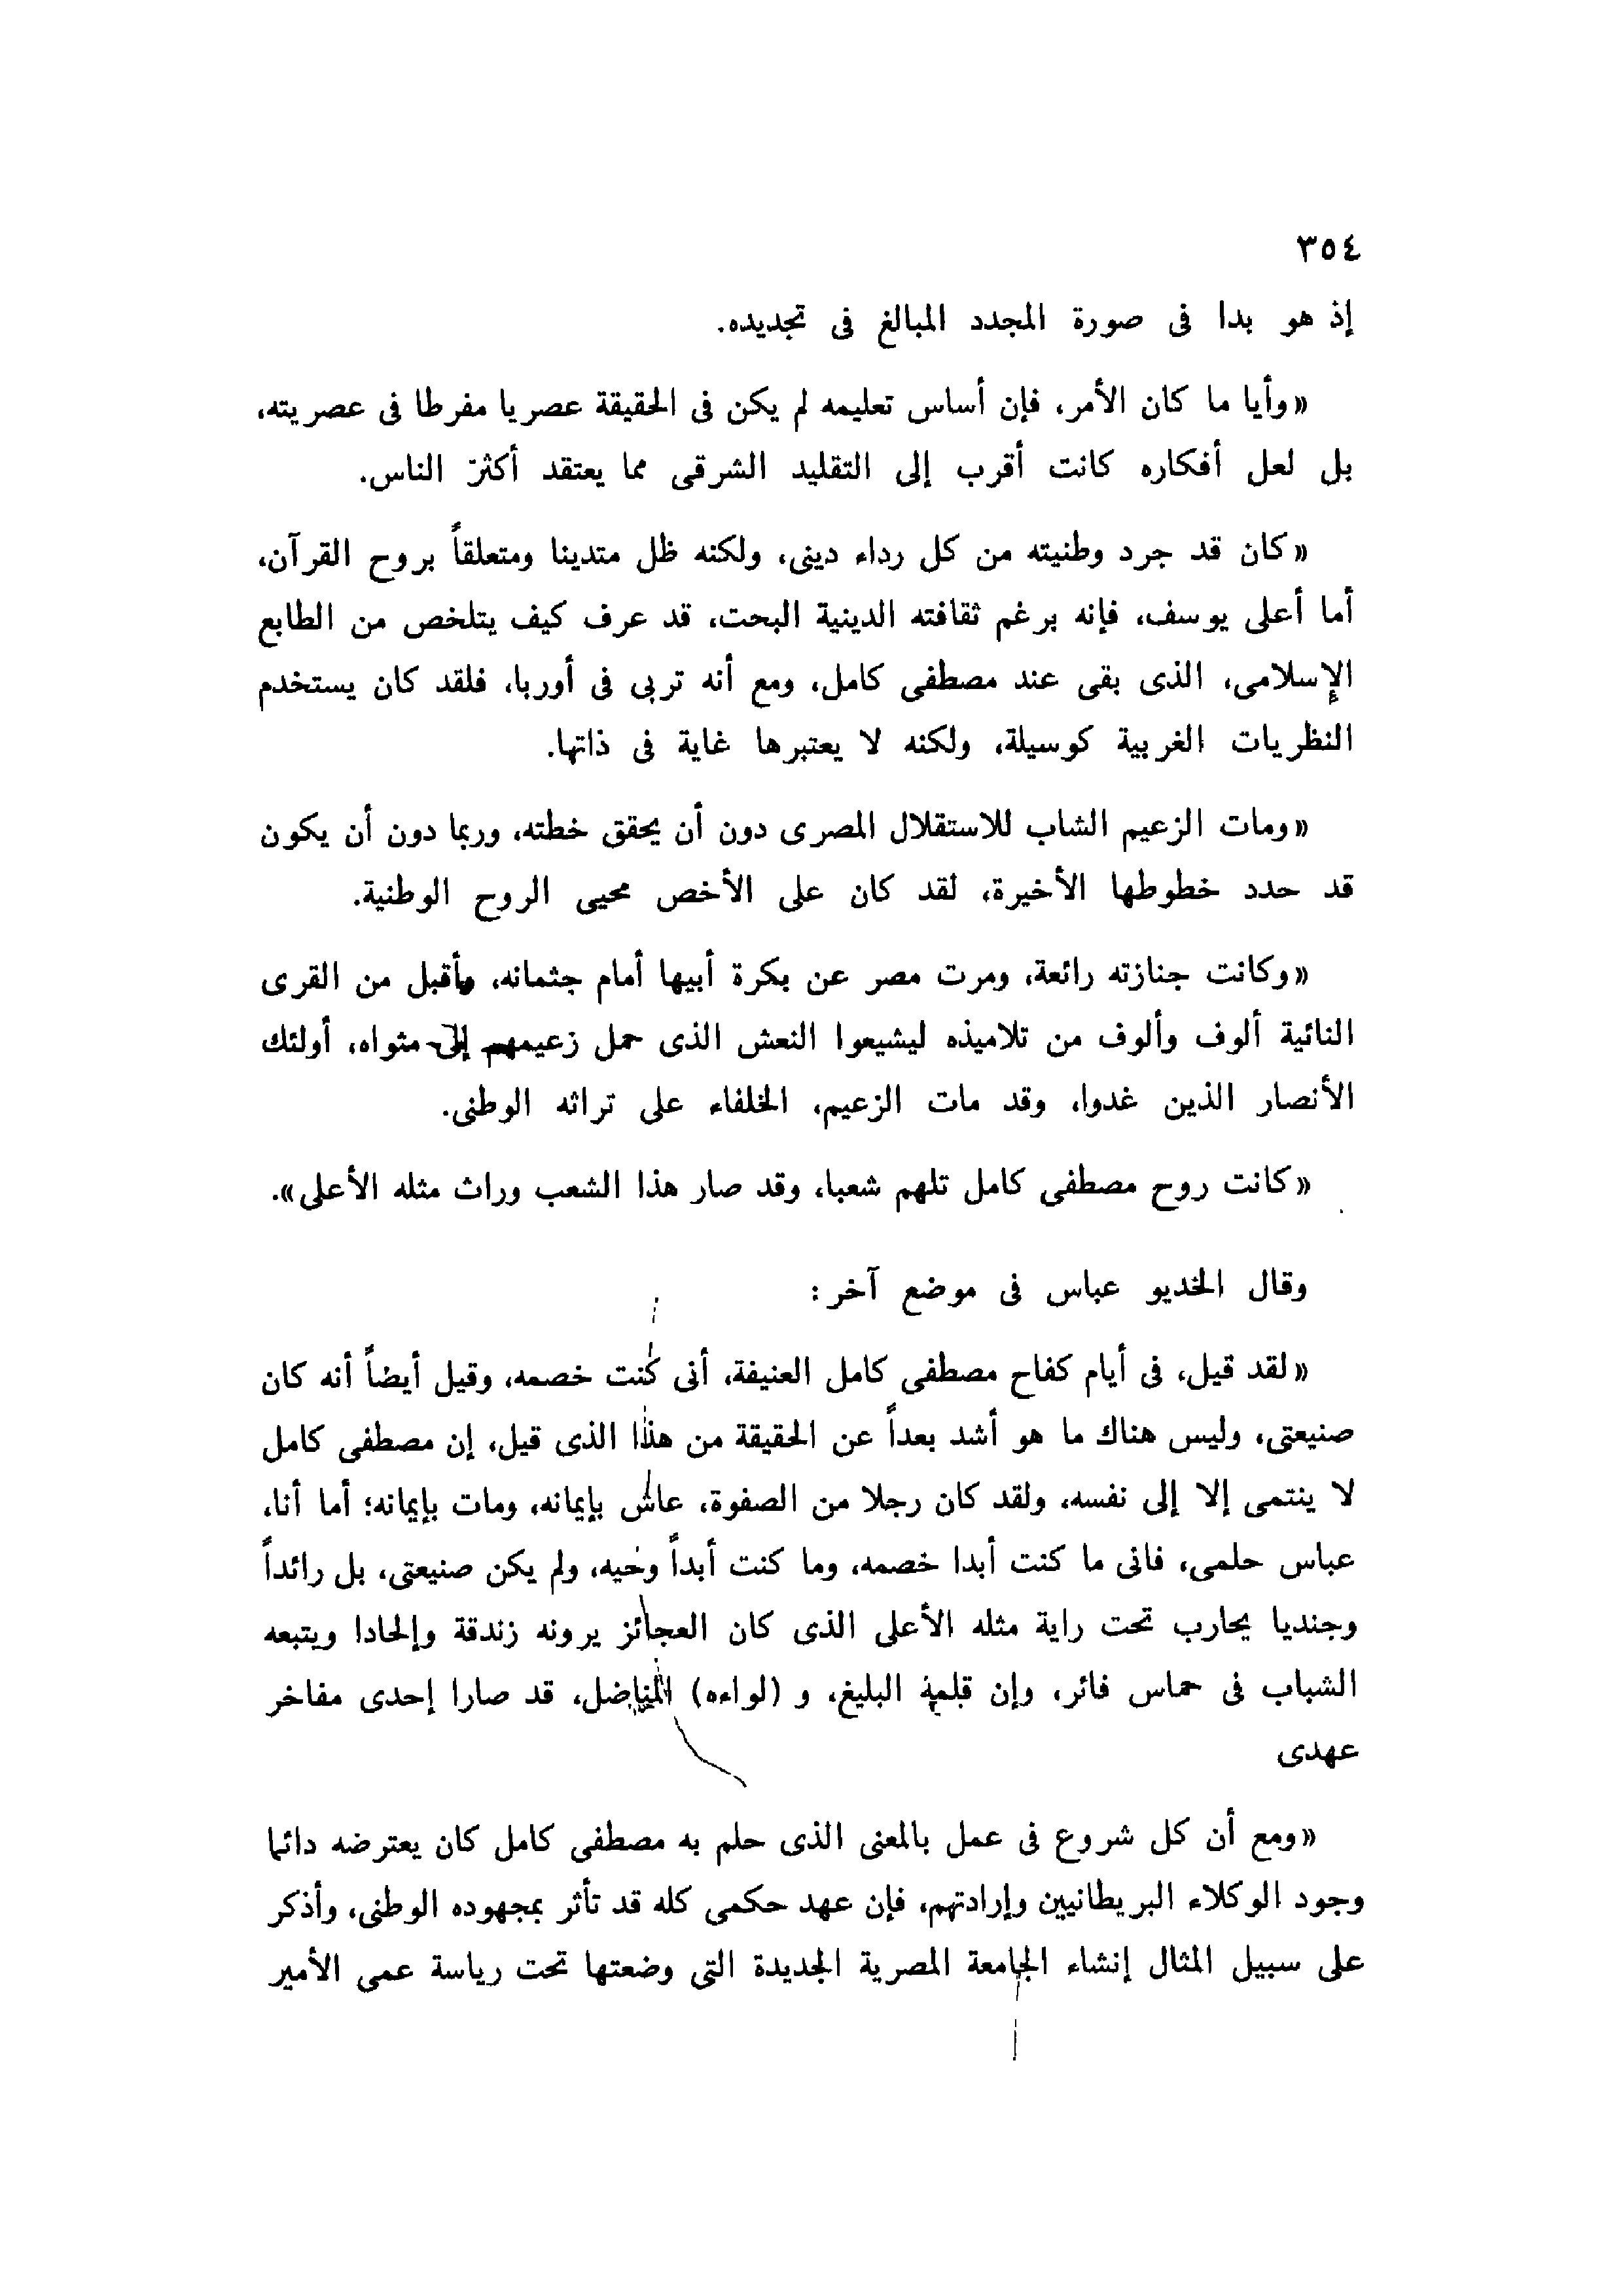 ٣٥٤
إذ هو بدا فى صورة المجدد المبالغ فى تجديده.
«وأيا ما كان الأمر، فإن أساس تعليمه لم يكن فى الحقيقة عصريا مفرطا فى عصريته،
بل لعل أفكاره كانت أقرب إلى التقليد الشرقى مما يعتقد أكثر الناس.
«كان قد جرد وطنيته من كل رداء دينى، ولكنه ظل متدينا ومتعلقاً بروح القرآن،
أما أعلى يوسف، فإنه برغم ثقافته الدينية البحت، قد عرف كيف يتلخص من الطابع
الإسلامى، الذى بقى عند مصطفى كامل، ومع أنه تربى فى أوربا، فلقد كان يستخدم
النظريات الغربية كوسيلة، ولكنه لا يعتبرها غاية فى ذاتها.
«ومات الزعيم الشاب للاستقلال المصرى دون أن يحقق خطته، وربما دون أن يكون
قد حدد خطوطها الأخيرة، لقد كان على الأخص محيى الروح الوطنية.
«وكانت جنازته رائعة، ومرت مصر عن بكرة أبيها أمام جثمانه، وأقبل من القرى
النائية ألوف وألوف من تلاميذه ليشيعوا النعش الذى حمل زعيمهم إلى مثواه، أولئك
الأنصار الذين غدوا، وقد مات الزعيم، الخلفاء على تراثه الوطنى.
«كانت روح مصطفى كامل تلهم شعبا، وقد صار هذا الشعب وراث مثله الأعلى».
وقال الخديو عباس فى موضع آخر:
«لقد قيل، فى أيام كفاح مصطفى كامل العنيفة، أنى كنت خصمه، وقيل أيضاً أنه كان
صنيعتى، وليس هناك ما هو أشد بعداً عن الحقيقة من هذا الذى قيل، إن مصطفى كامل
لا ينتمى إلا إلى نفسه، ولقد كان رجلا من الصفوة، عاش بإيمانه، ومات بإيمانه؛ أما أنا،
عباس حلمى، فانى ما كنت أبدا خصمه، وما كنت أبداً وحيه، ولم يكن صنيعتى، بل رائداً
وجنديا يحارب تحت راية مثله الأعلى الذى كان العجائز يرونه زندقة وإلحادا ويتبعه
الشباب فى حماس فائر، وإن قلمه البليغ، و (لواءه) المناضل، قد صارا إحدى مفاخر
عهدى
«ومع أن كل شروع فى عمل بالمعنى الذى حلم به مصطفى كامل كان يعترضه دائما
وجود الوكلاء البريطانيين وإرادتهم، فإن عهد حكمى كله قد تأثر بمجهوده الوطنى، وأذكر
على سبيل المثال إنشاء الجامعة المصرية الجديدة التى وضعتها تحت رياسة عمى الأمير